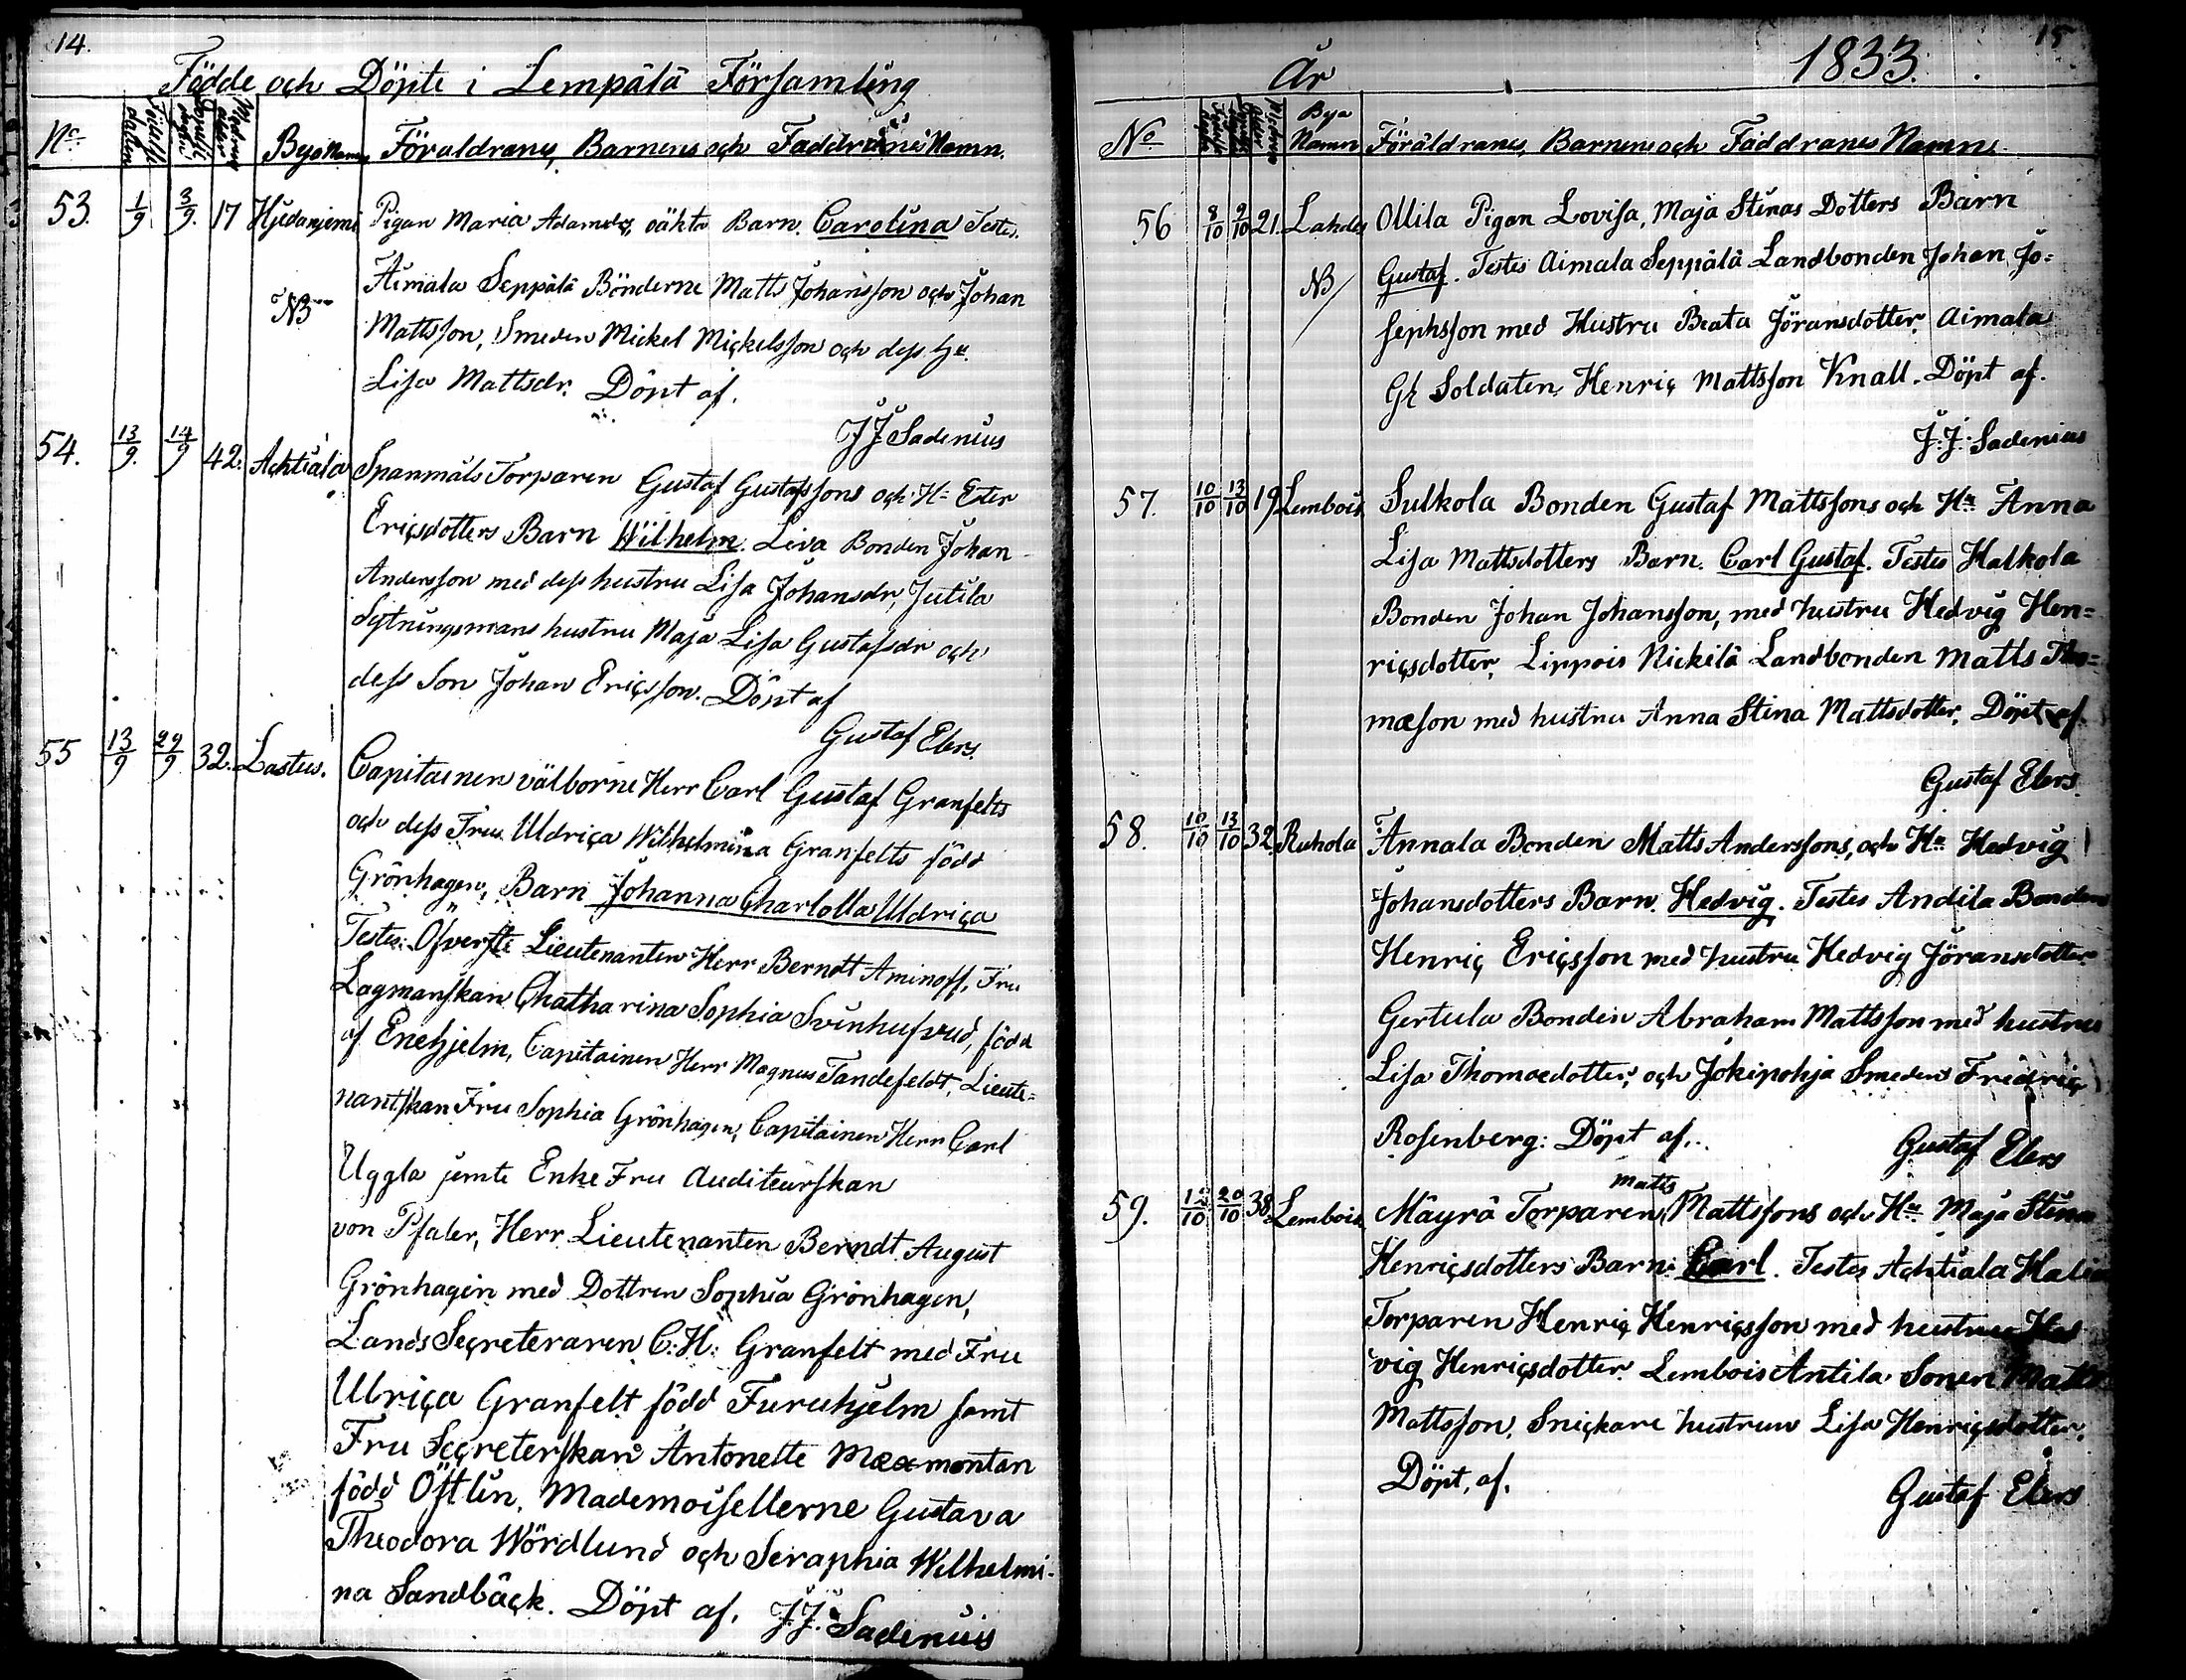 14.
Födde och Döpte i Lempälä Församling
No
Födelse dagen
Moderns ålder
Byanamn
Föraldrans, Barnens och Faddranes Namn.
53. 1/9 3/9. 17 Hjedanjemi Pigan Maria Adamsdr, oäkta Barn. Carolina Testes.
Aimala Seppälä Bönderne Matts Johansson och Johan
NB
Mattsson, Smeden Mickel Mickelsson och dess hu
Lisa Mattsdr. Döpt af.
J J Sadenius
54. 13/9. 14/9 42. Achtiala Spanmåls Torparen Gustaf Gustafssons och H: Ester
Ericsdotters Barn Wilhelm. Liva Bonden Johan
Andersson med dess hustru Lisa Johansdr, Jutila
Sytningsmans hustru Maja Lisa Gustafsdr och
dess Son Johan Ericsson. Döpt af
Gustaf Elers.
55 13/9 29/9 32. Lastus. Capitainen välborne Herr Carl Gustaf Granfelts
och dess Fru Uldrica Wilhelmina Granfelts född
Grönhagen, Barn Johanna Charlotta Uldrica
Testes: Öfverste Lieutenanten Herr Berndt Aminoff, Fru
Lagmanskan Chatharina Sophia Svinhufvud, född
af Enehjelm, Capitainen Herr Magnus Tandefeldt, Lieute=
nantskan Fru Sophia Grönhagen, Capitainen Herr Carl
Uggla jemte Enke Fru Auditeurskan
von Pfaler, Herr Lieutenanten Berndt August
Grönhagen med Dottren Sophia Grönhagen,
Lands Secreteraren C:H: Granfelt med Fru
Ulrica Granfelt född Furuhjelm samt
Fru Secreterskan Antonette Maxmontan
född Östlin, Mademoisellerne Gustava
Theodora Wördlund och Seraphia Wilhelmi-
na Sandbäck. Döpt af. J.J. Sadenius
15
År 1833.
No Bya Namn Föräldranes, Barnens och Faddranes Namn.
56 8/10 9/10 21. Lahdes Ollila Pigan Lovisa, Maja Stinas Dotters Barn
Gustaf. Testes Aimala Seppälä Landbonden Johan Jo=
NB
sephsson med Hustru Beata Jöransdotter, Aimala
Gl Soldaten Henric Mattsson Knall. Döpt af.
J.J. Sadenius
57. 10/10 13/10 19 Lembois Sulkola Bonden Gustaf Mattssons och Hu Anna
Lisa Mattsdotters Barn. Carl Gustaf. Testes Halkola
Bonden Johan Johansson, med hustru Hedvig Hen=
ricsdotter, Lippois Nickilä Landbonden Matts Tho=
mæson med hustru Anna Stina Mattsdotter, Döpt af.
Gustaf Elers.
58. 10/10 13/10 32. Ruhola Annala Bonden Matts Anderssons, och Hu Hedvig
Johansdotters Barn. Hedvig. Testes Andila Bonden
Henric Ericsson med hustru Hedvig Jöransdotter
Gertula Bonden Abraham Mattsson med hustru
Lisa Thomædotter, och Jokipohja Smeden Fredric
Rosenberg: Döpt af.. Gustaf Elers
matts
59. 20/10 38. Lembois Mäyrä Torparen Mattssons och Hu Maja Stina
Henricsdotters Barn: Carl. Testes Achtiala
Torparen Henric Henricsson med hustru Hed
vig Henricsdotter. Lembois Antila Sonen Matts
Mattsson, Snickare hustrun Lisa Henricsdotter.
Döpt, af. Gustaf Elers